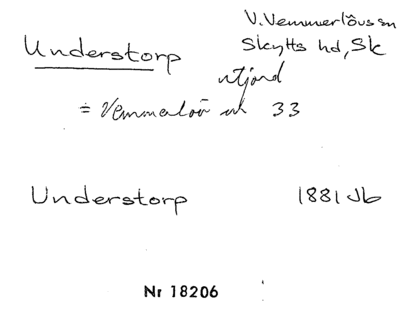 V. Vemmerlövs sn
Understorp Skytts hd, Sk
utjord
= Vemmerlöv nr 33
Understorp 1881 Jb
Nr 18206